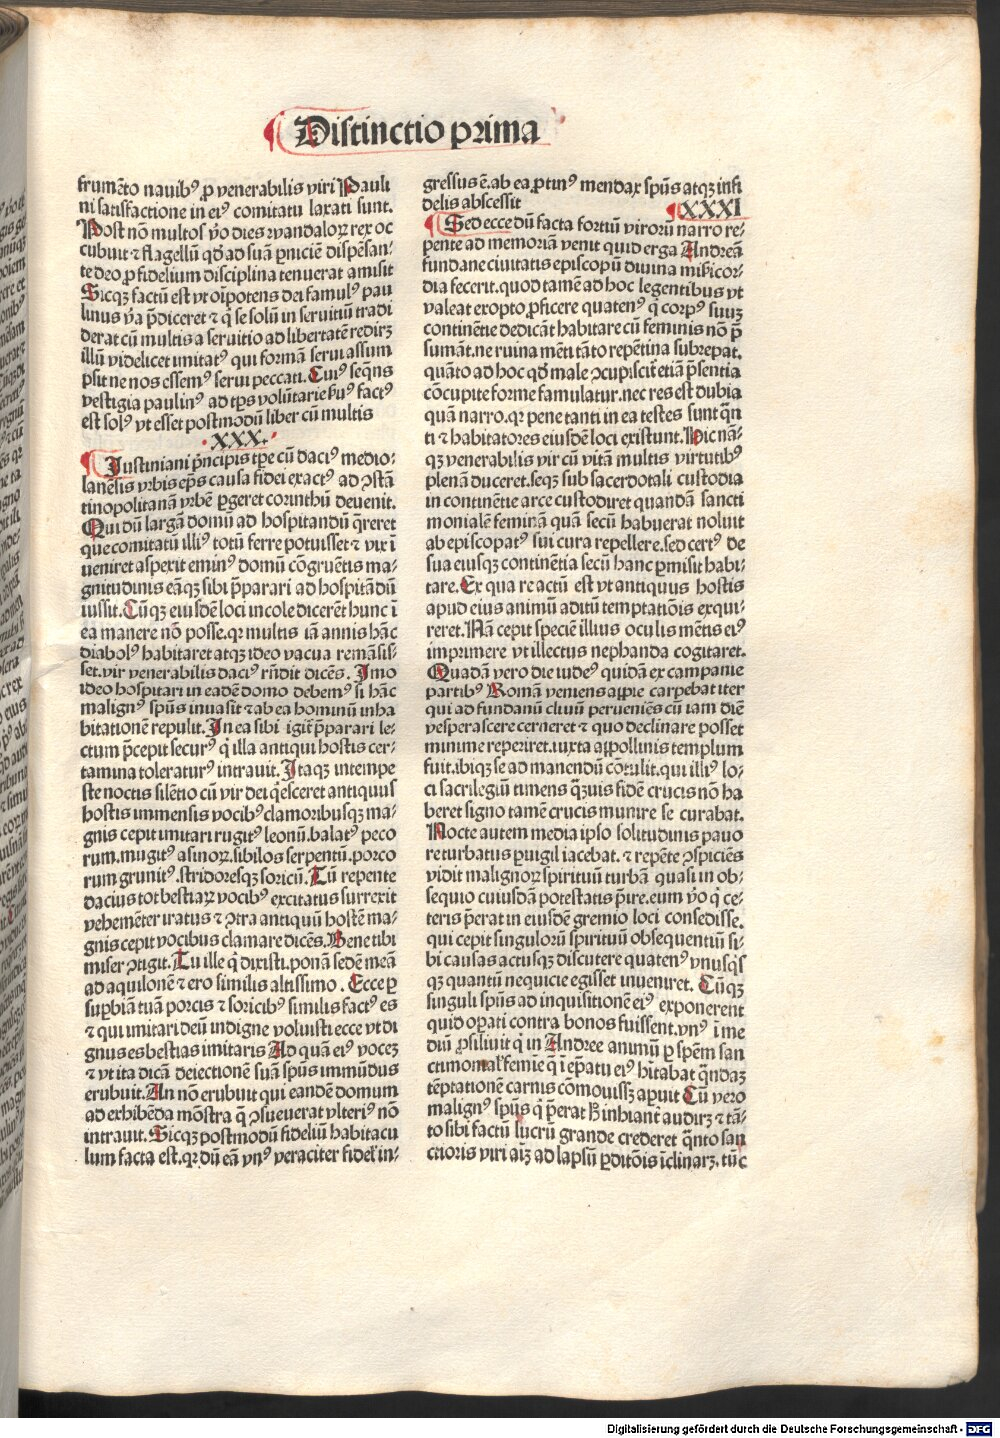 Distinctio prima
frumēto nauibꝰ ꝓ venerabilis viri Pauli
ni satisfactione in eiꝰ comitatu laxati sunt.
Post nō multos ṽo dies vvandaloꝝ rex oc
cubuit ⁊ flagellū qd̄ ad suā ꝑniciē dispēsan-
te deo ꝓ fidelium disciplina tenuerat amisit
Sicqꝫ factū est vt oīpotens dei famulꝰ pau
linus ṽa p̄diceret ⁊ q̄ se solū in seruitiū tradi
derat cū multis a seruitio ad libertatē redirꝫ
illū videlicet imitatꝰ qui formā serui assum
psit ne nos essemꝰ serui peccati. Cuiꝰ seq̄ns
vestigia paulinꝰ ad tp̄s volūtarie ẜuꝰ factꝰ
est solꝰ vt esset postmodū liber cū multis
.XXX.
Iustiniani p̄ncipis tp̄e cū daciꝰ medio-
lanēsis vrbis ep̄s causa fidei exactꝰ ad ꝯstā
tinopolitanā vrbē ꝑgeret corinthū deuenit.
Qui dū largā domū ad hospitandū q̄reret
que comitatū illiꝰ totū ferre potuisset ⁊ vix ī
veniret aspexit eminꝰ domū cōgruētis ma-
gnitudinis eāqꝫ sibi p̄parari ad hospitādū
iussit. Cūqꝫ eiusdē loci incole dicerēt hunc ī
ea manere nō posse. qꝛ multis iā annis hāc
diabolꝰ habitaret atqꝫ ideo vacua remāsis-
set. vir venerabilis daciꝰ rn̄dit dicēs. Imo
ideo hospitari in eadē domo debemꝰ si hāc
malignꝰ spūs inuasit ⁊ ab ea hominū inha
bitationē repulit. In ea sibi igit̃ p̄parari le-
ctum p̄cepit securꝰ q̄ illa antiqui hostis cer-
tamina toleraturꝰ intrauit. Itaqꝫ intempe
ste noctis silētio cū vir dei q̄esceret antiquus
hostis immensis vocibꝰ clamoribusqꝫ ma-
gnis cepit imitari rugitꝰ leonū. balatꝰ peco
rum. mugitꝰ asinoꝝ. sibilos serpentū. porco
rum grunitꝰ. stridoresqꝫ soricū. Tū repente
dacius tot bestiaꝝ vocibꝰ excitatus surrexit
vehemēter iratus ⁊ ꝯtra antiquū hostē ma-
gnis cepit vocibus clamare dicēs. Bene tibi
miser ꝯtigit. Tu ille q̄ dixisti. ponā sedē meā
ad aquilonē ⁊ ero similis altissimo. Ecce ꝑ
suꝑbiā tuā porcis ⁊ soricibꝰ similis factꝰ es
⁊ qui imitari deū indigne voluisti ecce vt di
gnus es bestias imitaris Ad quā eiꝰ vocez
⁊ vt ita dicā deiectionē suā spūs immūdus
erubuit. An nō erubuit qui eandē domum
ad exhibēda mōstra q̄ ꝯsueuerat vlteriꝰ nō
intrauit. Sicqꝫ postmodū fideliū habitacu
lum facta est. qꝛ dū eā vnꝰ veraciter fidel' in-
gressus ē. ab ea ꝓtinꝰ mendax spūs atqꝫ infi
delis abscessit
XXXI
Sed ecce dū facta fortiū virorū narro re-
pente ad memoriā venit quid erga Andreā
fundane ciuitatis episcopū diuina misericor-
dia fecerit. quod tamē ad hoc legentibus vt
valeat exopto ꝓficere quatenꝰ q̄ corpꝰ suuꝫ
continētie dedicāt habitare cū feminis nō p̄
sumāt. ne ruina mēti tāto repētina subrepat.
quāto ad hoc qd̄ male ꝯcupiscit etiā p̄sentia
cōcupite forme famulatur. nec res est dubia
quā narro. qꝛ pene tanti in ea testes sunt q̄n
ti ⁊ habitatores eiusdē loci existunt. Hic nā-
qꝫ venerabilis vir cū vitā multis virtutibꝰ
plenā duceret. seqꝫ sub sacerdotali custodia
in continētie arce custodiret quandā sancti
monialē feminā quā secū habuerat noluit
ab episcopatꝰ sui cura repellere. sed certꝰ de
sua eiusqꝫ continētia secū hanc ꝑmisit habi-
tare. Ex qua re actū est vt antiquus hostis
apud eius animū aditū temptatiōis exqui-
reret. Nā cepit speciē illius oculis mētis eiꝰ
imprimere vt illectus nephanda cogitaret.
Quadā vero die iudeꝰ quidā ex campanie
partibꝰ Romā veniens appie carpebat iter
qui ad fundanū cliuū perueniēs cū iam diē
vesperascere cerneret ⁊ quo declinare posset
minime reperiret. iuxta appollinis templum
fuit. ibiqꝫ se ad manendū cōtulit. qui illiꝰ lo-
ci sacrilegiū timens q̄ꝫuis fidē crucis nō ha
beret signo tamē crucis munire se curabat.
Nocte autem media ipso solitudinis pauo
re turbatus ꝑuigil iacebat. ⁊ repēte ꝯspiciēs
vidit malignoꝝ spirituū turbā quasi in ob-
sequio cuiusdā potestatis p̄ire. eum ṽo q̄ ce-
teris p̄erat in eiusdē gremio loci consedisse.
qui cepit singulorū spirituū obsequentiū si-
bi causas actusqꝫ discutere quatenꝰ vnusq̄s
qꝫ quantū nequicie egisset inueniret. Cūqꝫ
singuli spūs ad inquisitionē eiꝰ exponerent
quid oꝑati contra bonos fuissent. vnꝰ ī me
diū ꝓsiliuit q̄ in Andree animū ꝑ spēm san
ctimonial' femie q̄ ī ep̄atu eiꝰ hītabat q̄ndaꝫ
tēptationē carnis cōmouissꝫ aꝑuit Cū vero
malignꝰ spūs q̄ p̄erat ꝫ inhiant̄ audirꝫ ⁊ tā-
to sibi factū lucrū grande crederet q̄nto san
ctioris viri aīꝫ ad lapsū ꝑditōis īclinarꝫ. tūc
Digitalisierung gefördert durch die Deutsche Forschungsgemeinschaft - DFG